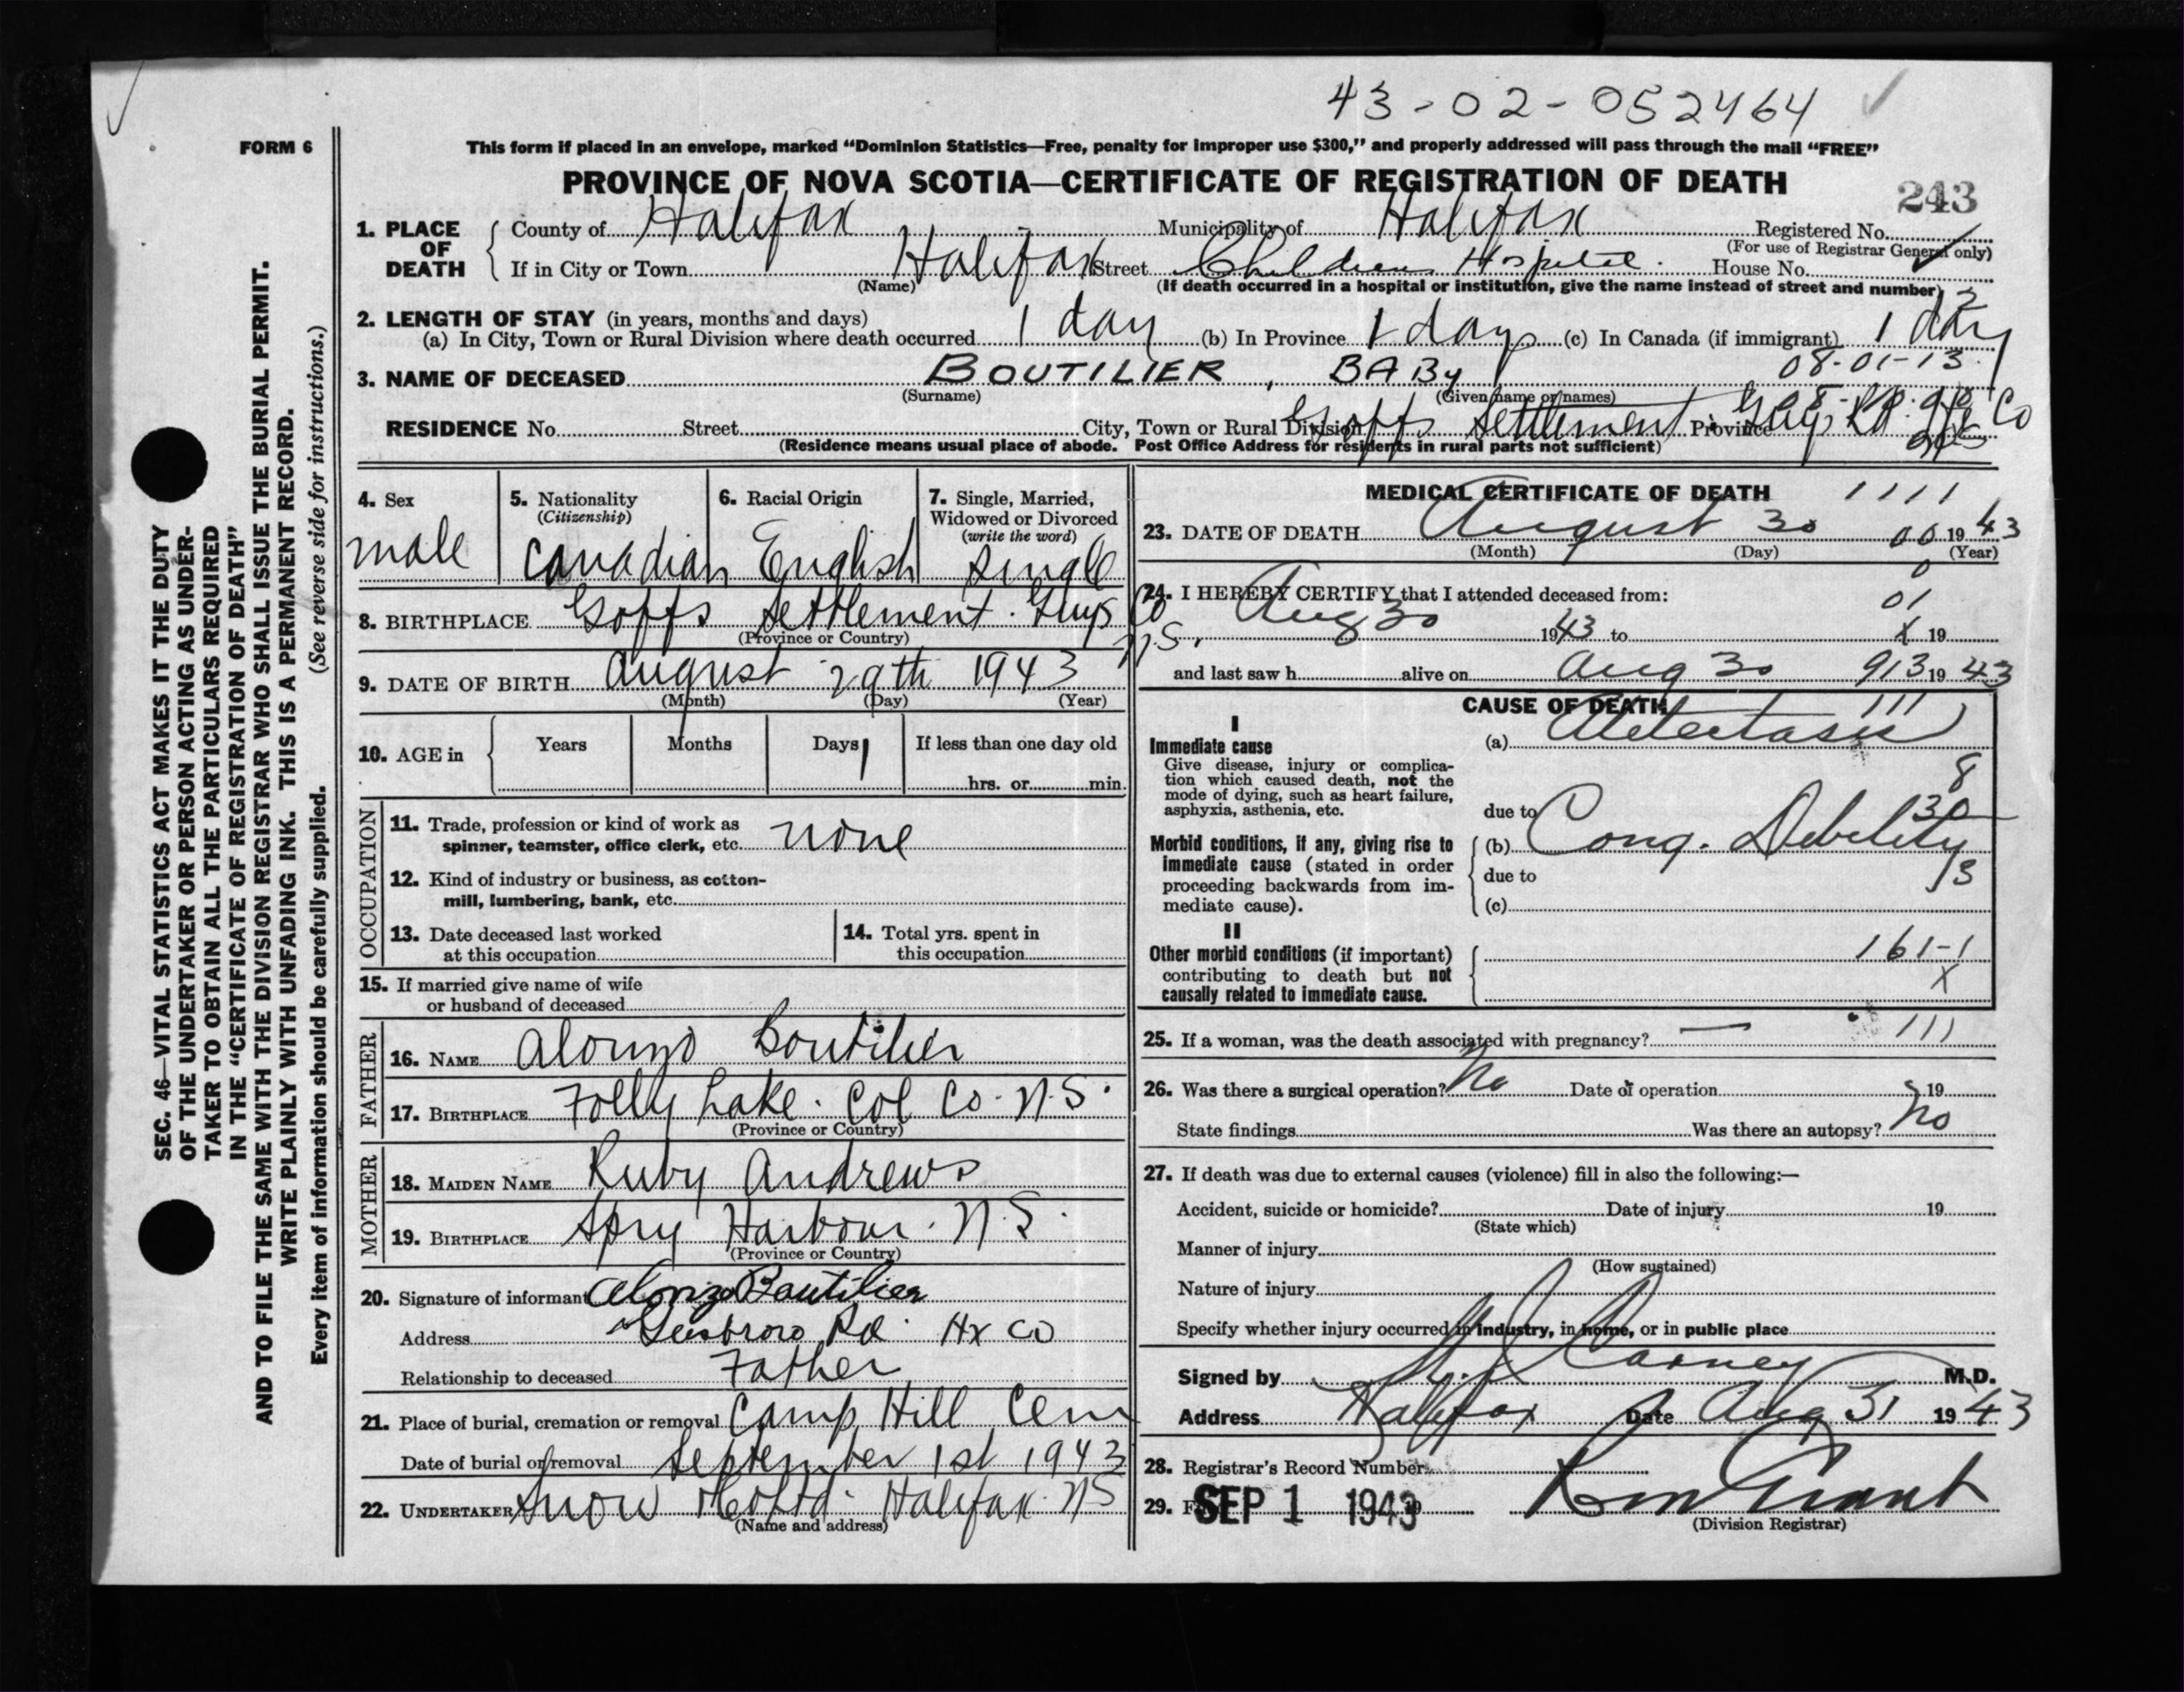 43-02-052464
FORM 6
This form if placed in an envelope, marked “Dominion Statistics—Free, penalty for improper use $300,” and properly addressed will pass through the mail “FREE”
PROVINCE OF NOVA SCOTIA—CERTIFICATE OF REGISTRATION OF DEATH
243
1. PLACE OF DEATH
County of Halifax Municipality of Halifax Registered No.
(For use of Registrar General only)
If in City or Town Halifax Street Childrens Hospital. House No.
(Name) (If death occurred in a hospital or institution, give the name instead of street and number)
2. LENGTH OF STAY (in years, months and days)
(a) In City, Town or Rural Division where death occurred 1 day (b) In Province 1 day (c) In Canada (if immigrant) 1 day
08-01-13
3. NAME OF DECEASED BOUTILIER, BABy
(Surname) (Given name or names)
RESIDENCE No. Street City, Town or Rural Division Goffs Settlement Province Guys Rd Hfx Co
(Residence means usual place of abode. Post Office Address for residents in rural parts not sufficient)
4. Sex male
5. Nationality (Citizenship) Canadian
6. Racial Origin English
7. Single, Married, Widowed or Divorced (write the word) single
8. BIRTHPLACE Goffs Settlement. Guys Co N.S.
(Province or Country)
9. DATE OF BIRTH August 29th 1943
(Month) (Day) (Year)
10. AGE in Years Months Days 1 If less than one day old
hrs. or min.
OCCUPATION
11. Trade, profession or kind of work as
spinner, teamster, office clerk, etc. none
12. Kind of industry or business, as cotton-
mill, lumbering, bank, etc.
13. Date deceased last worked
at this occupation
14. Total yrs. spent in
this occupation
15. If married give name of wife
or husband of deceased
FATHER
16. NAME Alonzo Boutilier
17. BIRTHPLACE Folly Lake. Col Co. N.S.
(Province or Country)
MOTHER
18. MAIDEN NAME Ruby Andrews
19. BIRTHPLACE Spry Harbour. N.S.
(Province or Country)
20. Signature of informant Alonzo Boutilier
Address Guysboro Rd. Hx Co
Relationship to deceased Father
21. Place of burial, cremation or removal Camp Hill Cem
Date of burial or removal September 1st 1943
22. UNDERTAKER Snow & Co Ltd. Halifax. NS
(Name and address)
MEDICAL CERTIFICATE OF DEATH 1111
23. DATE OF DEATH August 30 00 1943
(Month) (Day) (Year)
24. I HEREBY CERTIFY that I attended deceased from: 01
Aug 30 1943 to X 19
and last saw h alive on Aug 30 913 1943
CAUSE OF DEATH 111
I
Immediate cause
Give disease, injury or complica-
tion which caused death, not the
mode of dying, such as heart failure,
asphyxia, asthenia, etc.
(a) Atelectasis
8
due to 30
Morbid conditions, if any, giving rise to
immediate cause (stated in order
proceeding backwards from im-
mediate cause).
(b) Cong. Debility
due to 13
(c)
II
Other morbid conditions (if important)
contributing to death but not
causally related to immediate cause.
161-1
X
25. If a woman, was the death associated with pregnancy? — 111
26. Was there a surgical operation? No Date of operation 19
State findings Was there an autopsy? No
27. If death was due to external causes (violence) fill in also the following:—
Accident, suicide or homicide? Date of injury 19
(State which)
Manner of injury
(How sustained)
Nature of injury
Specify whether injury occurred in industry, in home, or in public place
Signed by Carney M.D.
Address Halifax Date Aug 31 1943
28. Registrar's Record Number
29. SEP 1 1943 Grant
(Division Registrar)
SEC. 46—VITAL STATISTICS ACT MAKES IT THE DUTY
OF THE UNDERTAKER OR PERSON ACTING AS UNDER-
TAKER TO OBTAIN ALL THE PARTICULARS REQUIRED
IN THE “CERTIFICATE OF REGISTRATION OF DEATH”
AND TO FILE THE SAME WITH THE DIVISION REGISTRAR WHO SHALL ISSUE THE BURIAL PERMIT.
WRITE PLAINLY WITH UNFADING INK. THIS IS A PERMANENT RECORD.
Every item of information should be carefully supplied. (See reverse side for instructions.)